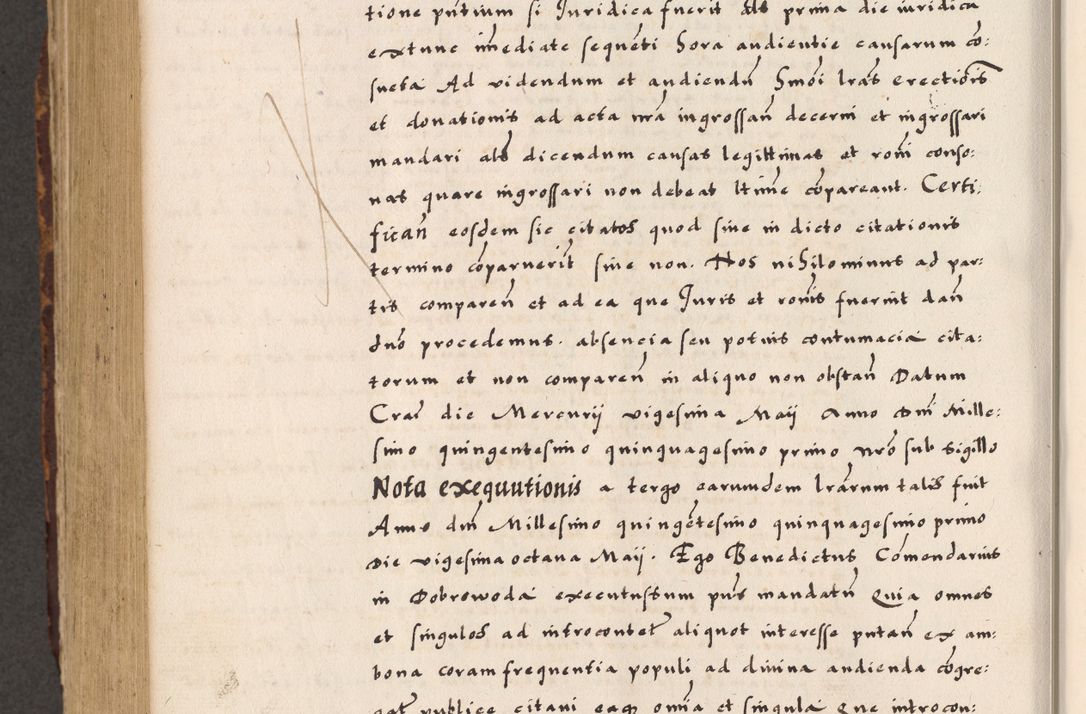 tione pntium si Iuridica fuerit als prima die iuridica
extunc imediate sequeti hora audientie causarum co:
sueta Ad videndum et audiendu hmoi lras erectiois
et donationis ad acta nra ingrossan decerni et ingrossari
mandari als dicendum causas legittimas et roni conso:
nas quare ingrossari non debeat ltime copareant. Certi,
fican eosdem sic citatos quod sive in dicto citationis
termino coparuerit sive non. Nos nihilominus ad par:
tis comparen et ad ea que Iuris et ronis fuerint dan
duo procedemus. absencia seu potius contumacia cita:
torum et non comparen in aliquo non obstan Datum
Crac die Mercurij vigesima Maij Anno Dni Mille:
simo quingentesimo quinquagesimo primo nro sub sigillo
Nota exequutionis a tergo earumdem lrarum talis fuit
Anno dni Millesimo quingetesimo quinquagesimo primo
Die vigesima octava Maij. Ego Benedictus Comendarius
in Dobrowoda executus sum pns mandatu Quia omnes
et singulos ad introcontet aliquot interesse putan ex am:
bona coram frequentia populi ad divina audienda cogre:
gat publice citavi eaq omia et singula Que introcon: